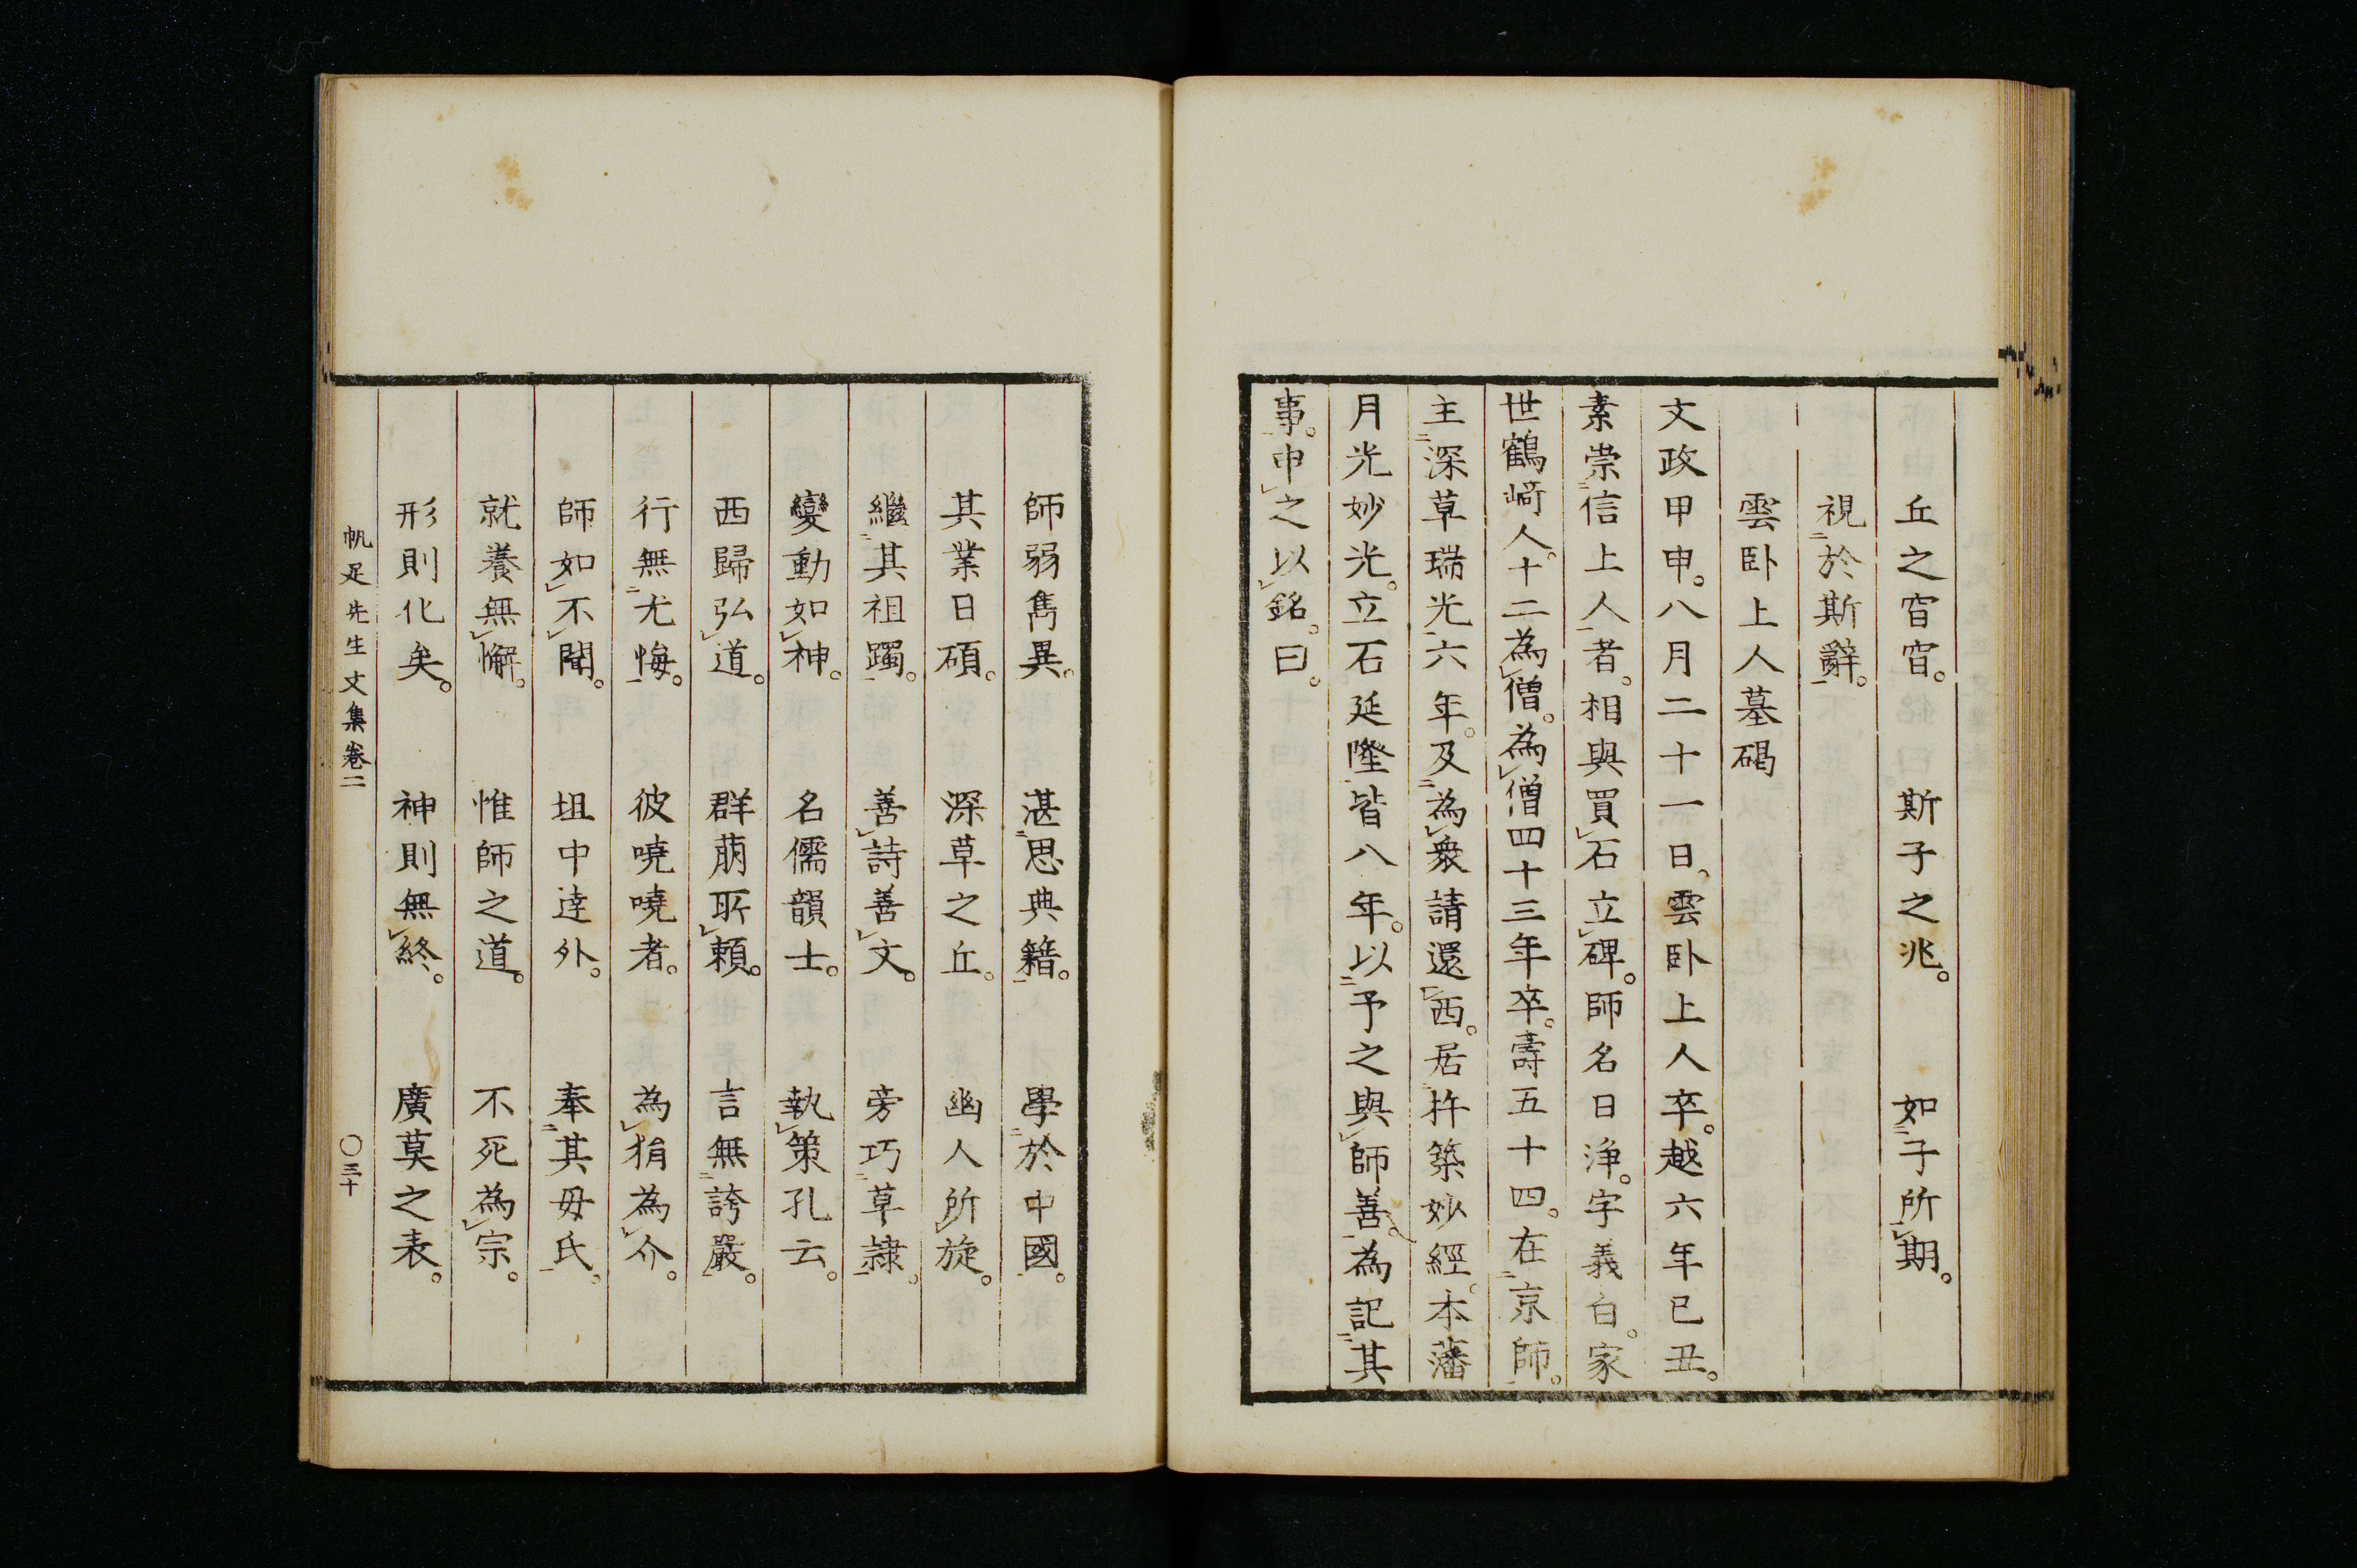 丘之窅窅。斯子之兆。如子所期。
視於斯辭。
雲卧上人墓碣
文政甲申。八月二十一日、雲卧上人卒。越六年已丑。
素崇信上人者。相與買石立碑。師名日淨。字義白。家
世鶴﨑人。十二為僧。為僧四十三年卒。壽五十四。在京師。
主深草瑞光六年。及為衆請還西。居杵築妙經。本藩
月光妙光。立石延隆皆八年。以予之與師善。為記其
事。申之以銘。曰。
師弱雋異。湛思典籍。學於中國。
其業日碩。深草之丘。幽人所旋。
繼其祖躅。善詩善文。旁巧草隷。
變動如神。名儒韻士。執策孔云。
西歸弘道。群萠所頼。言無誇嚴。
行無尤悔。彼嘵嘵者。為狷為介。
師如不聞。坦中達外。奉其毋氏。
就養無懈。惟師之道。不死為宗。
形則化矣。神則無終。廣莫之表。
帆足先生文集卷二 〇三十